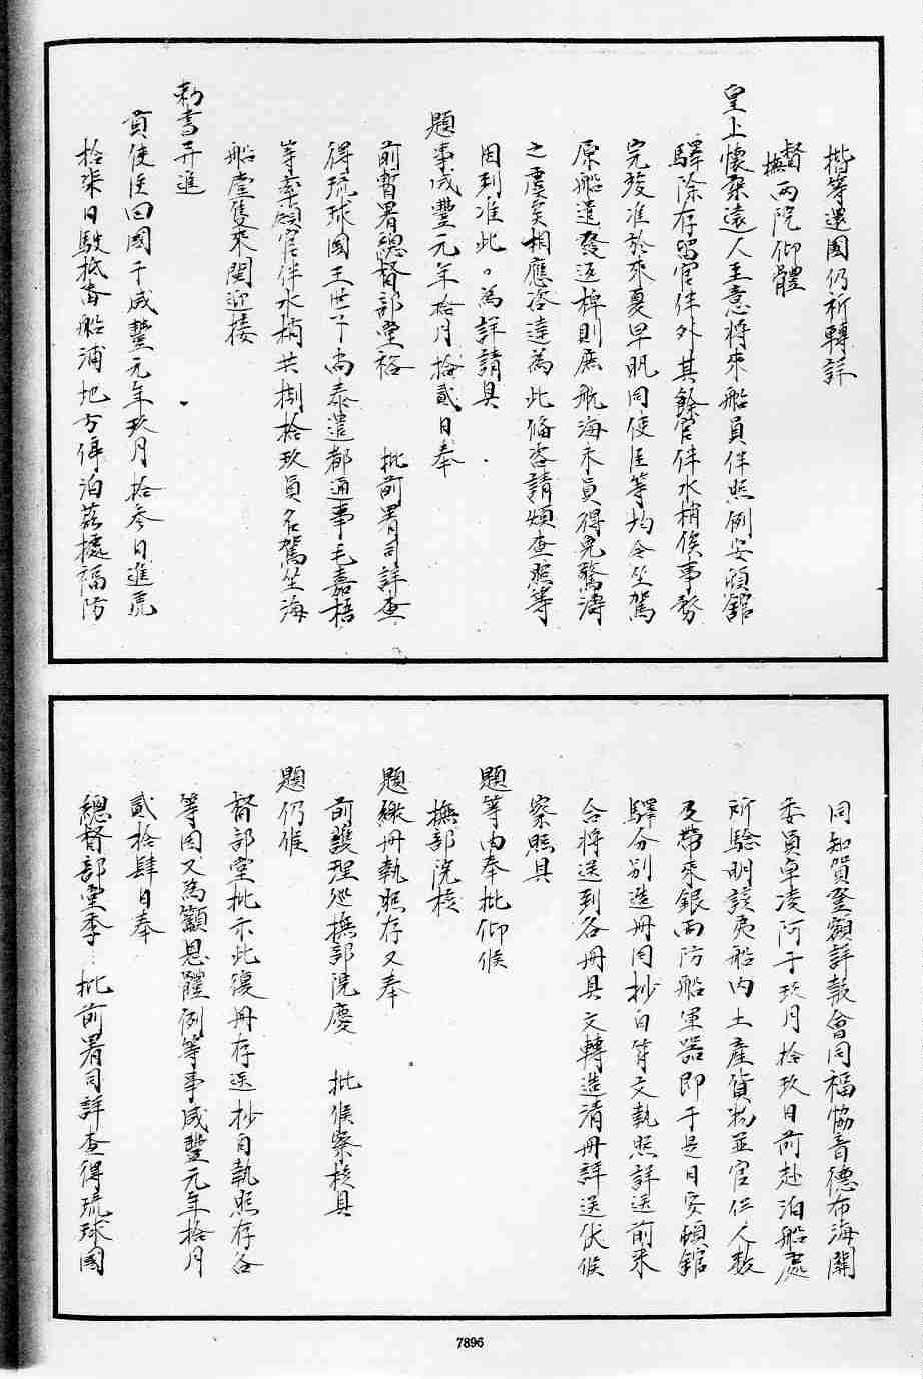 揩等還國仍祈轉詳
督撫兩院仰體
皇上懷柔遠人至意將來船員伴照例安頓館
驛除存留官伴外其餘官伴水梢俟事務
完竣准於來夏早帆同使臣等均令坐駕
原船遣發返棹則庶航海末員得免驚濤
之虞矣相應咨達為此備咨請煩查照等
因到准此為詳請具
題事咸豐元年拾月拾貳日奉
前暫署總督部堂裕 批前署司詳查
得琉球國王世子尚泰遣都通事毛嘉梧
等率領官伴水梢共捌拾玖員名駕坐海
船壹隻來閩迎接
勅書并進
貢使臣回國于咸豐元年玖月拾叁日進虎
拾柒日駛抵番船浦地方停泊茲據福防
同知賀登額詳報會同福協音德布海關
委員卓凌阿于玖月拾玖日前赴泊船處
所驗明該夷船內土產貨物並官伴人數
及帶來銀兩防船軍器即于是日安頓館
驛分別造冊同抄白符文執照詳送前來
合將送到各冊具文轉造清冊詳送伏候
察照具
題等由奉批仰候
撫部院核
題繳冊執照存又奉
前護理巡撫部院慶 批候察核具
題仍候
督部堂批示此復冊存送抄白執照存各
等因又為籲恩體例等事咸豐元年拾月
貳拾肆日奉
總督部堂季 批前署司詳查得琉球國
7896